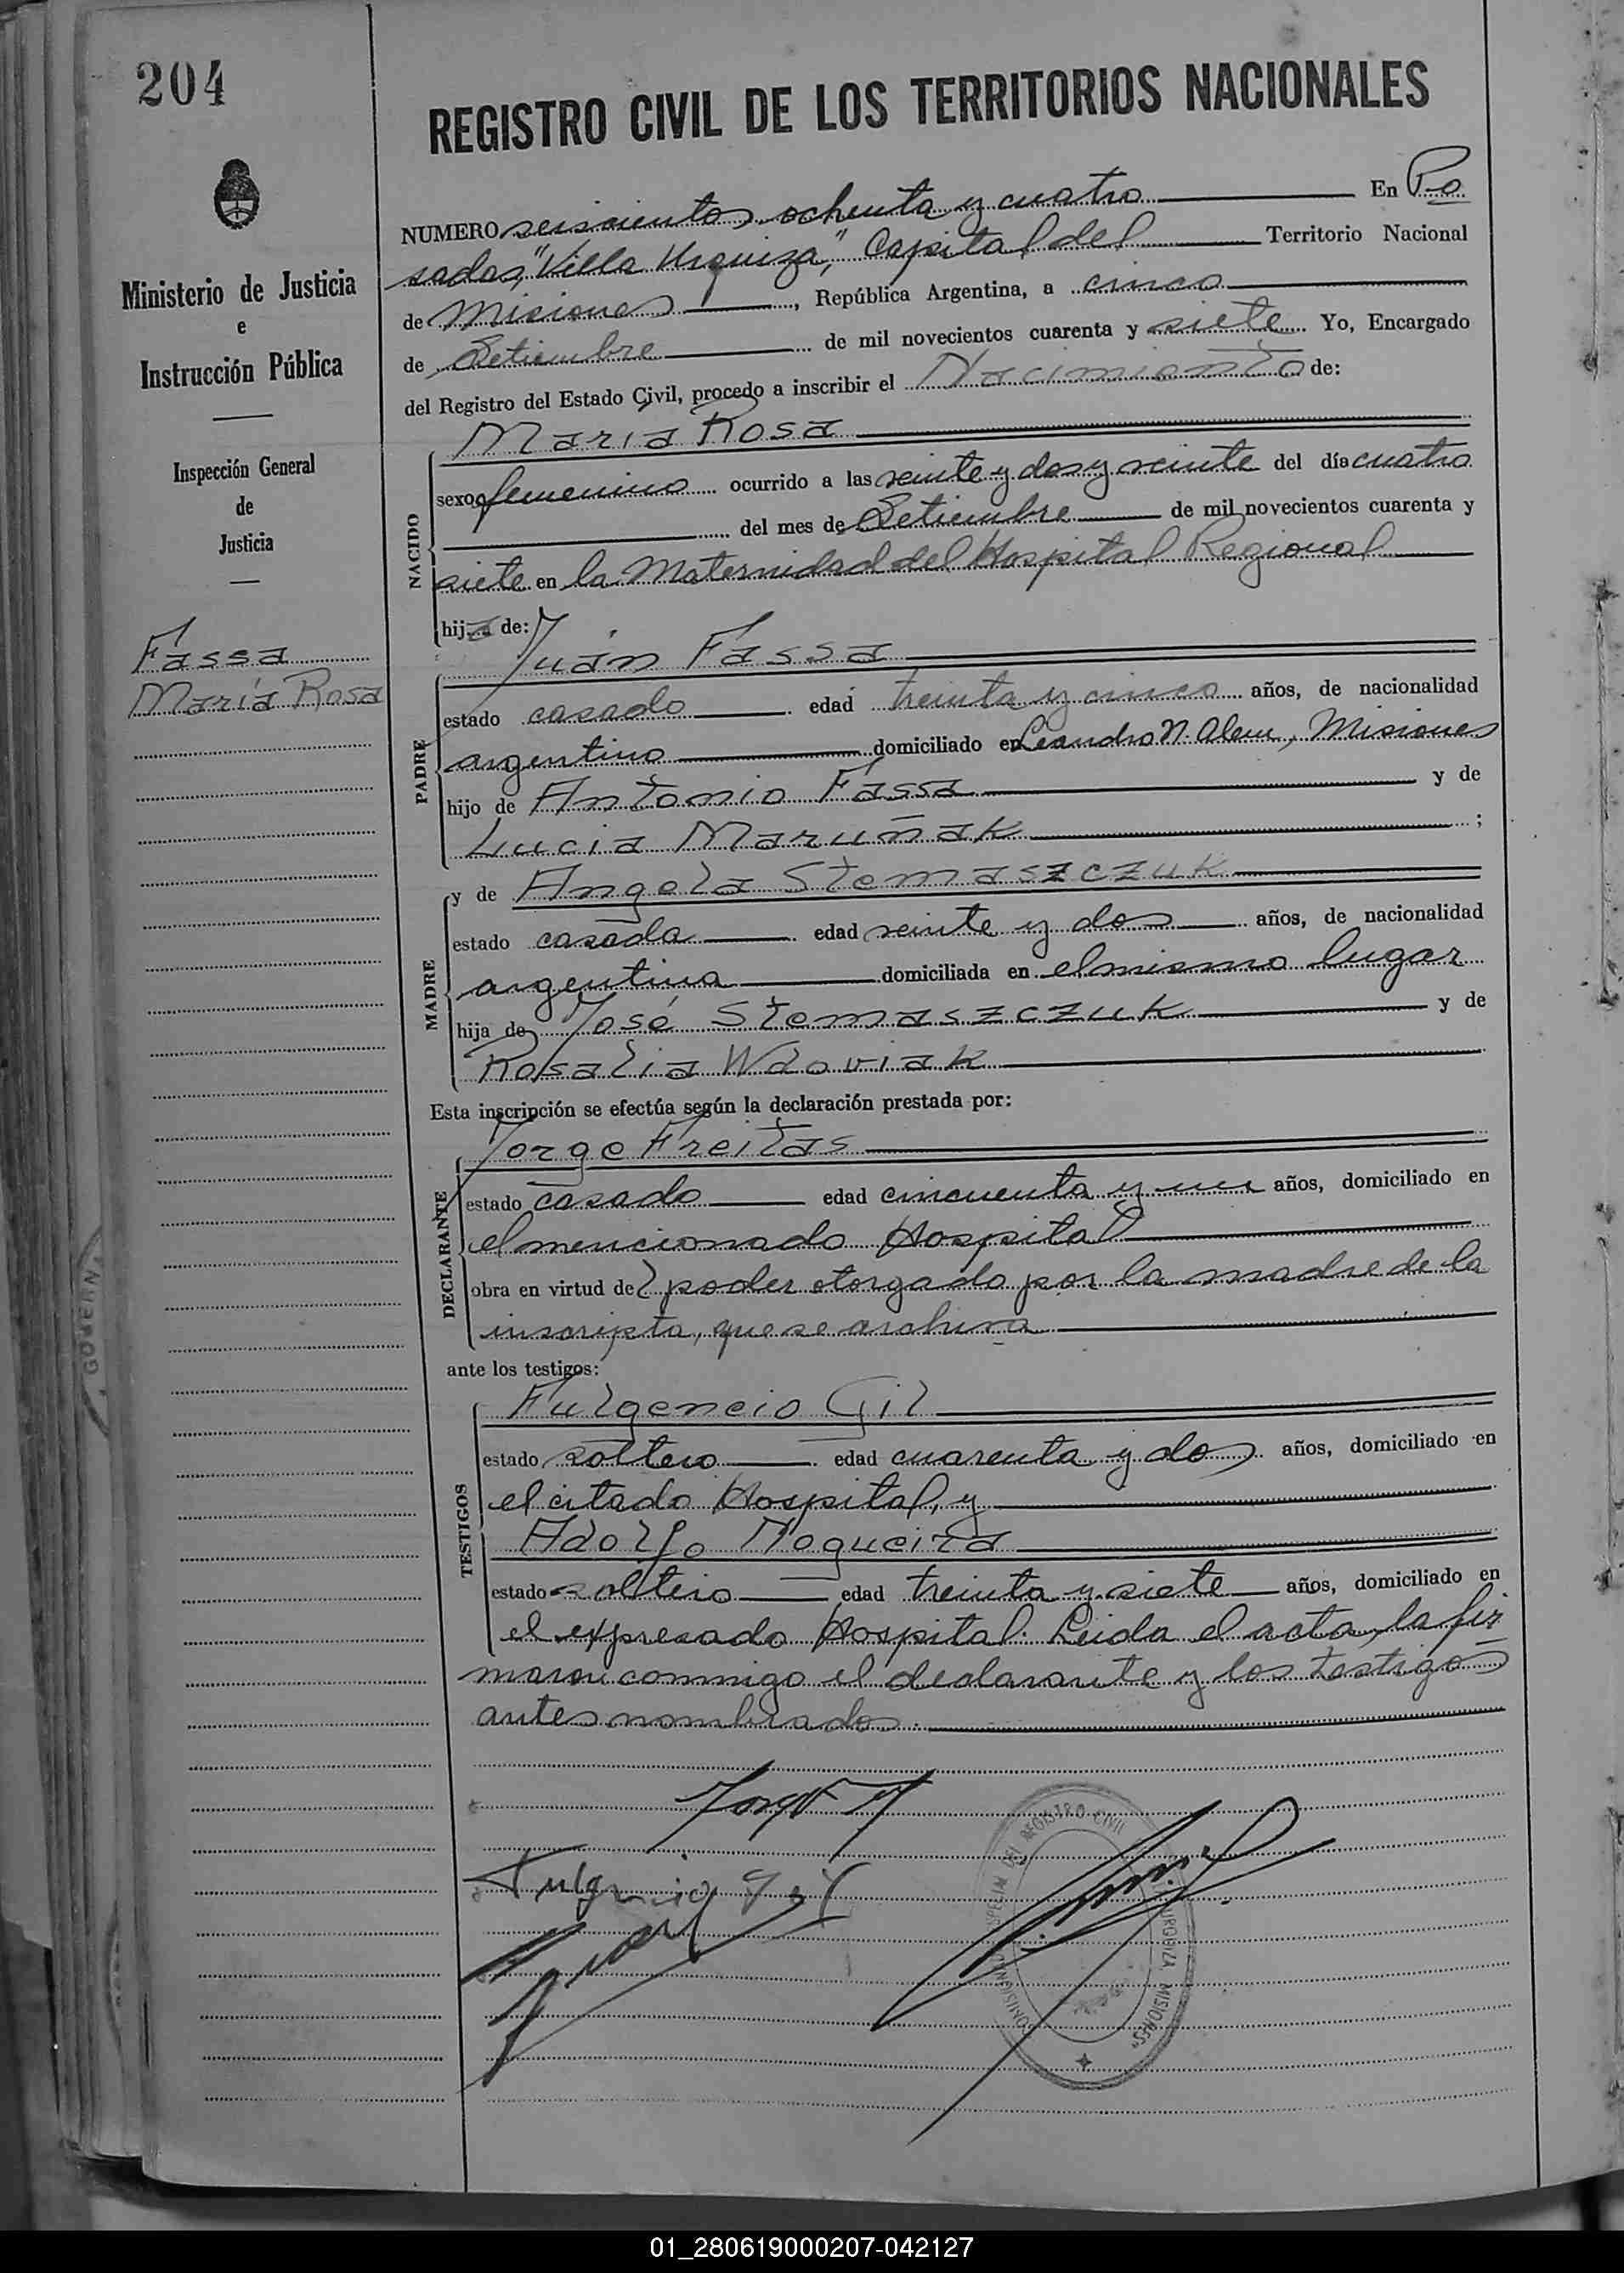 204
REGISTRO CIVIL DE LOS TERRITORIOS NACIONALES
Ministerio de Justicia
e
Instrucción Pública
Inspección General
de
Justicia
Fassa
María Rosa
NUMERO seiscientos ochenta y cuatro En Po
sadas, "Villa Urquiza", Capital del Territorio Nacional
de Misiones, República Argentina, a cinco
de Setiembre de mil novecientos cuarenta y siete Yo, Encargado
del Registro del Estado Civil, procedo a inscribir el Nacimiento de:
NACIDO
María Rosa
sexo femenino ocurrido a las veinte y dos y veinte del día cuatro
del mes de Setiembre de mil novecientos cuarenta y
siete en la Maternidad del Hospital Regional
hija de:
PADRE
Juan Fassa
estado casado edad treinta y cinco años, de nacionalidad
argentino domiciliado en Leandro N. Alem, Misiones
hijo de Antonio Fassa y de
Lucia Maruñak ;
MADRE
y de Angela Stemaszczuk
estado casada edad veinte y dos años, de nacionalidad
argentina domiciliada en el mismo lugar
hija de José Stemaszczuk y de
Rosalia Wdoviak
Esta inscripción se efectúa según la declaración prestada por:
DECLARANTE
Jorge Freitas
estado casado edad cincuenta y un años, domiciliado en
el mencionado Hospital
obra en virtud de poder otorgado por la madre de la
inscripta, que se archiva
ante los testigos:
TESTIGOS
Fulgencio Gil
estado soltero edad cuarenta y dos años, domiciliado en
el citado Hospital, y
Adolfo Nogueira
estado soltero edad treinta y siete años, domiciliado en
el expresado Hospital. Leida el acta, la fir
maron conmigo el declarante y los testigos
antes nombrados.
Fulgencio Gil
DEL REGISTRO CIVIL
URQUIZA MISIONES
01_280619000207-042127